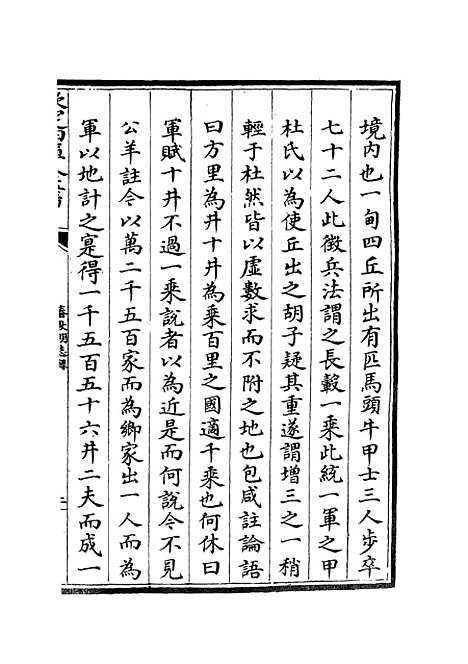 境内也一甸四丘所出有匹馬頭牛甲士三人步卒
七十二人此徵兵法謂之長轂一乘此統一軍之甲
杜氏以為使丘出之胡子疑其重遂謂增三之一稍
輕于杜然皆以虛數求而不附之地也包咸註論語
曰方里為井十井為乘百里之國適千乘也何休曰
軍賦十井不過一乘說者以為近是而何說今不見
公羊註令以萬二千五百家而為鄉家出一人而為
軍以地計之寔得一千五百五十六井二夫而成一
欽定四庫全書